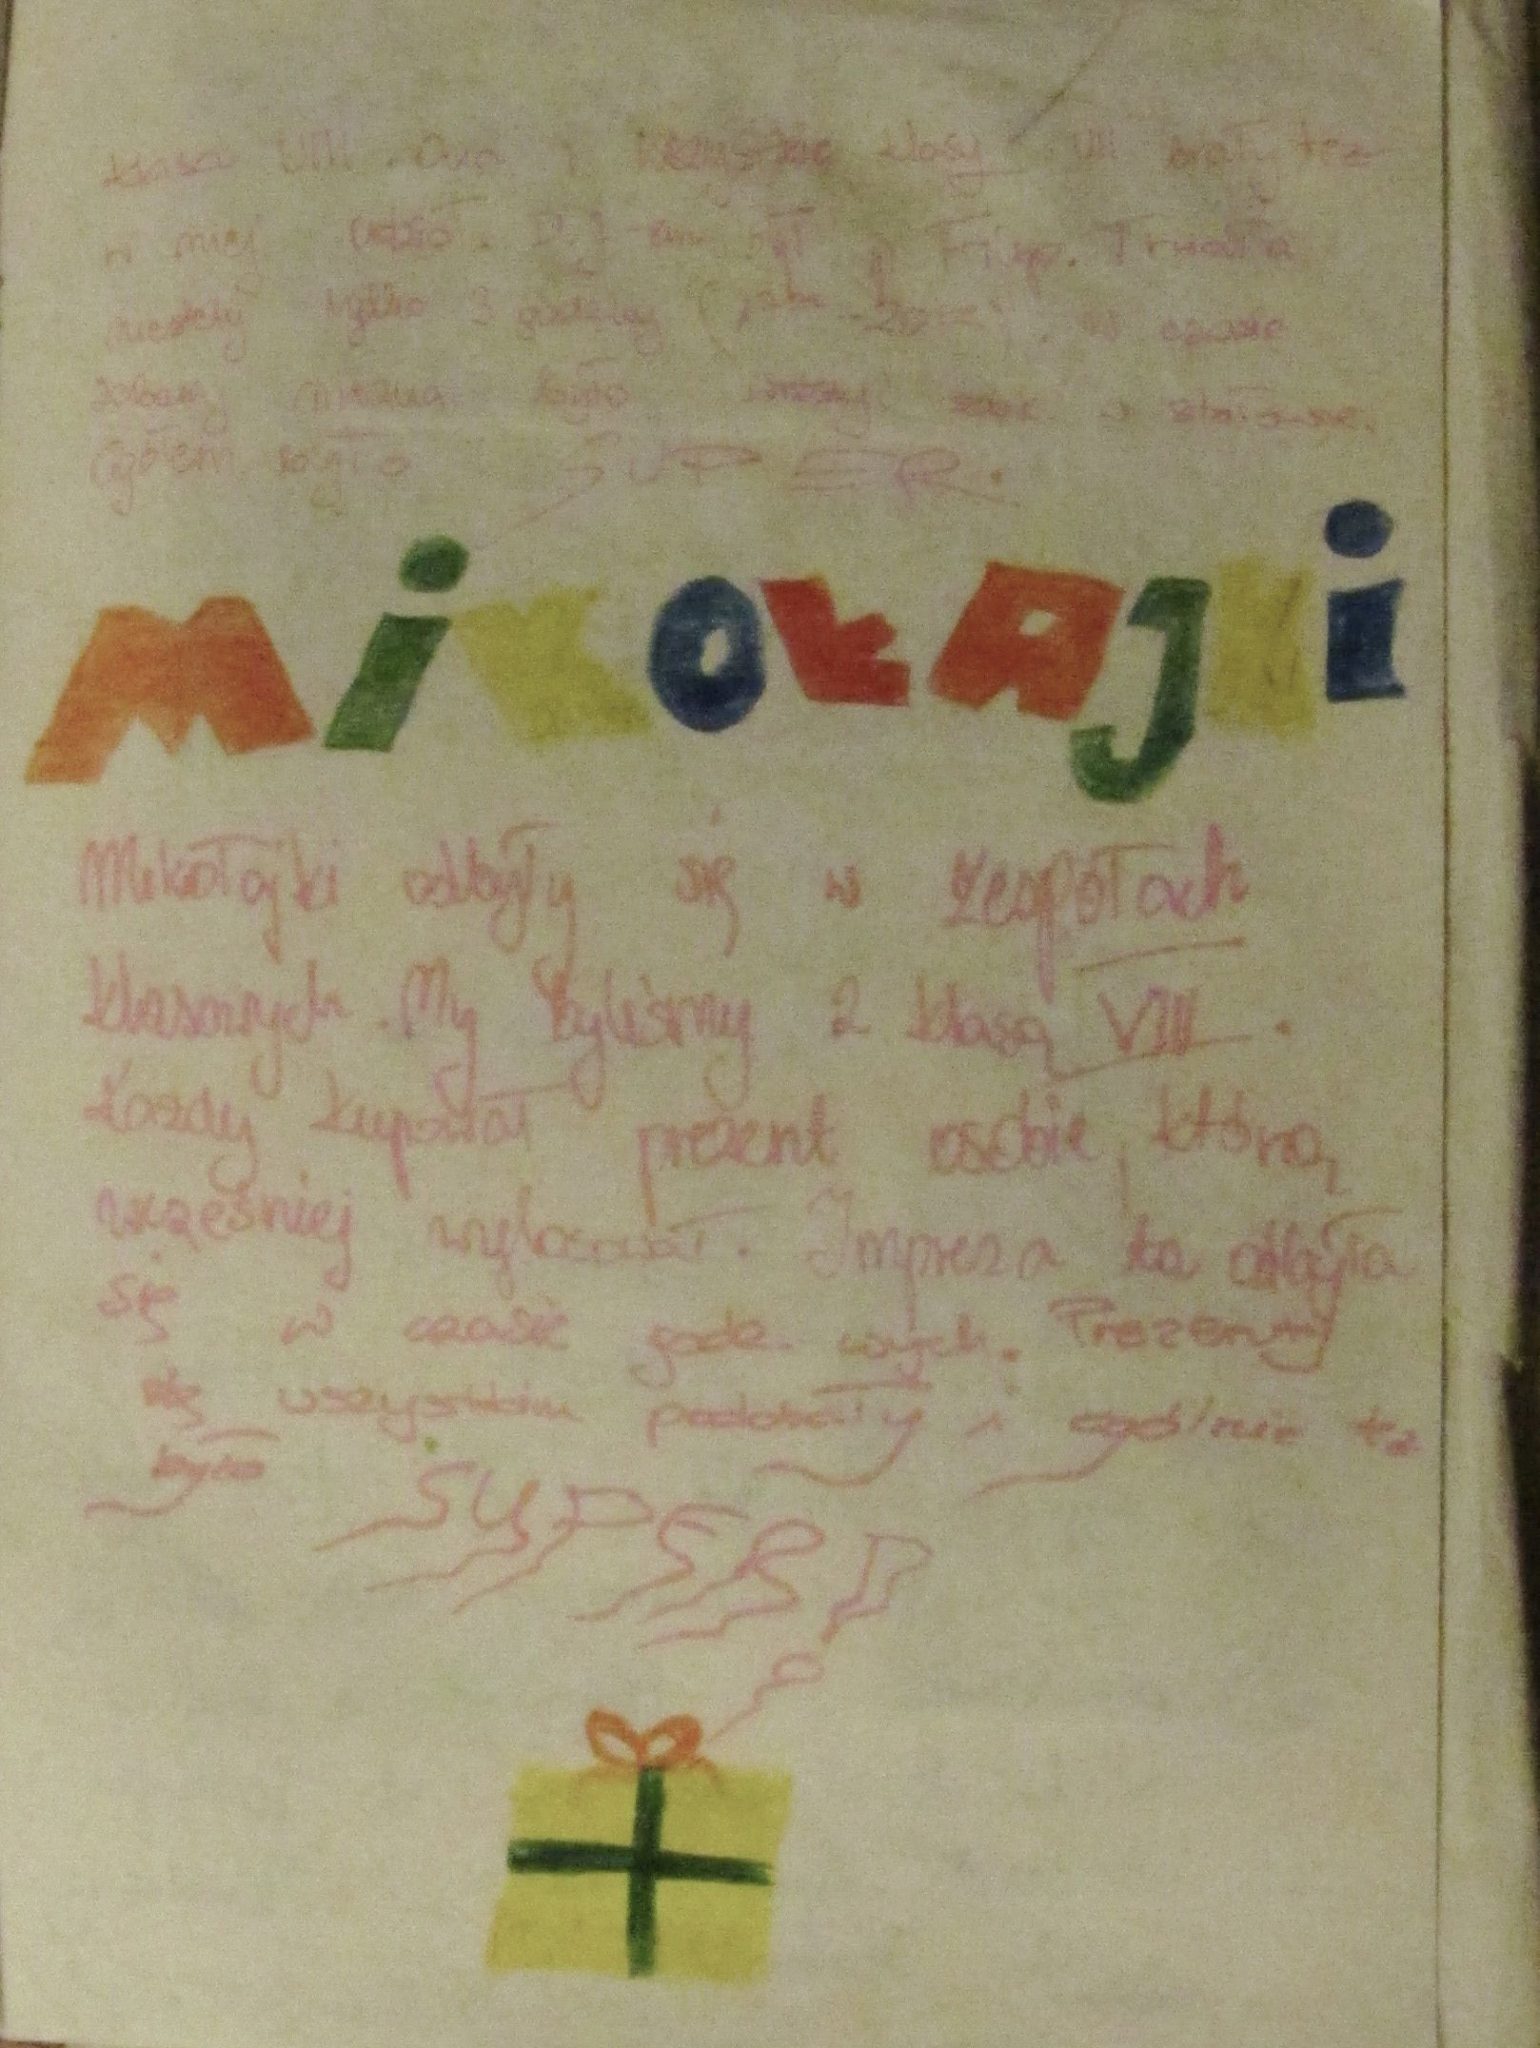 klasa VIII. Ona i klasy VII brały też
w niej udział. D.J-em był Filip. Trwała
niestety tylko 3 godziny w czasie
zabawy można było w stołówce.
Ogółem było SUPER.
MiKOŁAJKi
Mikołajki odbyły się w zespołach
klasowych. My byliśmy z klasą VIII.
Każdy kupował prezent osobie, którą
wcześniej wylosował. Impreza ta odbyła
się w czasie godz. wych. Prezenty
się wszystkim podobały i ogólnie też
było SUPER!